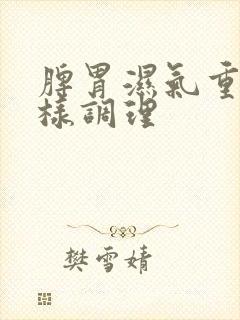 脾胃濕氣重
樣調理
樊雪婧